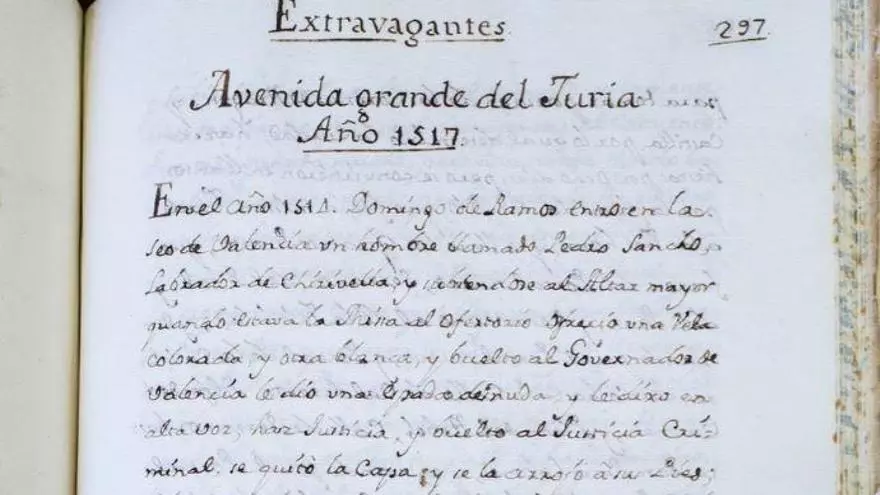 Extravagantes
297
Avenida grande del Turia
Año 1517
En el año 1514. Domingo de Ramos entró en la
seo de Valencia vn hombre llamado Pedro Sancho,
labrador de Chirivella, y subiendose al Altar mayor
quando estava la Missa al Ofertorio ofrecio vna Vela
colorada, y otra blanca, y buelto al Governador de
Valencia le dio vna Espada desnuda, y le dixo en
alta voz, haz Justicia, y buelto al Justicia Cri-
minal, se quitò la Capa, y se la arrojò à sus Pies;